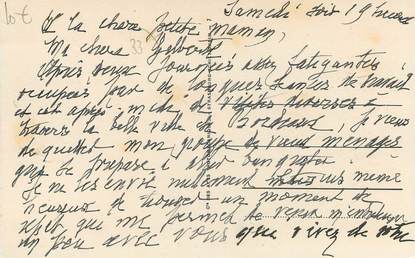 lot
Samedi soir 19 heures
A la chère petite maman,
Ma chère
33
Après deux journées assez fatigantes
occupées par de longues séances de travail
et cet après-midi de visites diverses à
travers la belle ville de Bordeaux, je viens
de quitter mon groupe de vieux ménages
qui se prépare à aller
Je ne les envie nullement même
heureux de trouver un moment de
répit que me permet de venir m'entretenir
un peu avec vous que